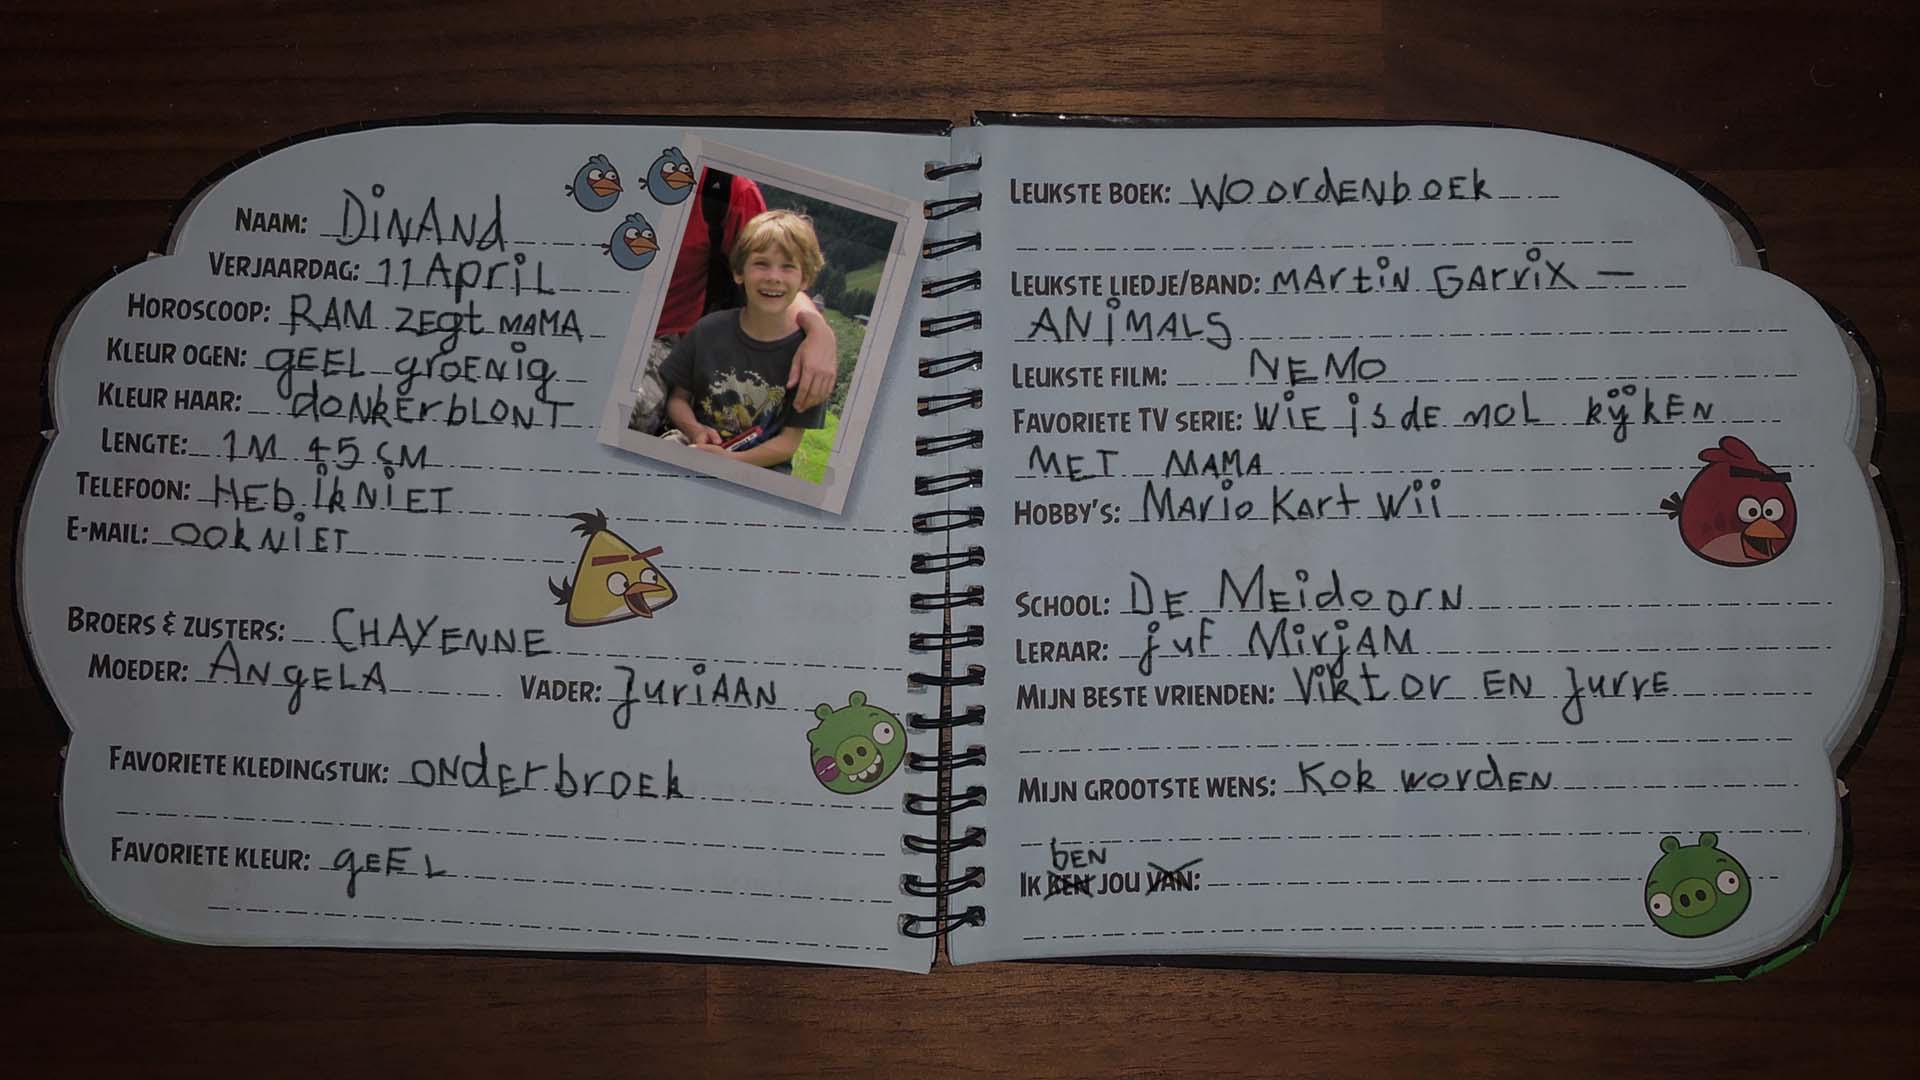 NAAM: DiNANd
VERJAARDAG: 11 April
HOROSCOOP: RAM zegt MAMA
KLEUR OGEN: gEEL groENig
KLEUR HAAR: doNkErbLONT
LENGTE: 1M 45 CM
TELEFOON: HEb ik NiET
E-MAIL: ook NiET
BROERS & ZUSTERS: CHAYENNE
MOEDER: ANgELA VADER: JuriAAN
FAVORIETE KLEDINGSTUK: ONdErbroEk
FAVORIETE KLEUR: gEEL
LEUKSTE BOEK: WOordENboEk
LEUKSTE LIEDJE/BAND: MArtiN GArriX –
ANiMALS
LEUKSTE FILM: NEMO
FAVORIETE TV SERIE: WiE is dE moL kijkEN
MET MAMA
HOBBY'S: Mario Kart Wii
SCHOOL: DE MEidoorN
LERAAR: juf MirjAM
MIJN BESTE VRIENDEN: Viktor EN JurrE
MIJN GROOTSTE WENS: Kok wordEN
bEN
IK BEN JOU VAN: